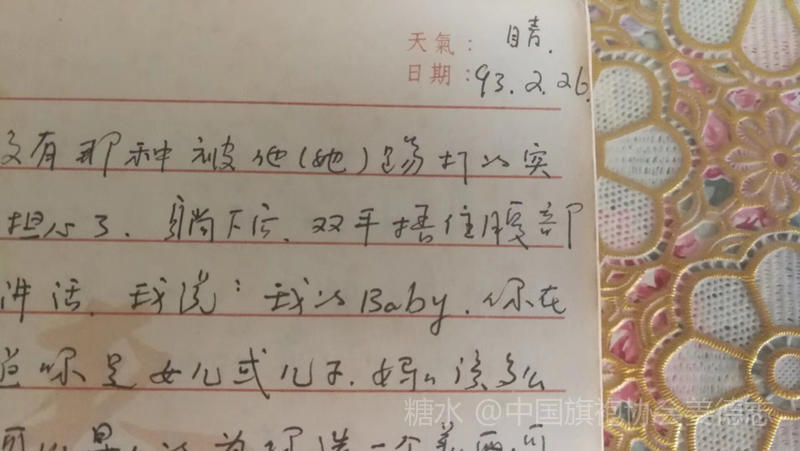 天氣： 晴.
日期：93.2.26.
没有那种被他(她)踢打的实
担心了. 躺下后. 双手捂住腹部
讲话. 我说：我的Baby. 你在
道你是女儿或儿子. 妈妈该多么
一个美丽可
糖水 @中国旗袍协会姜德志